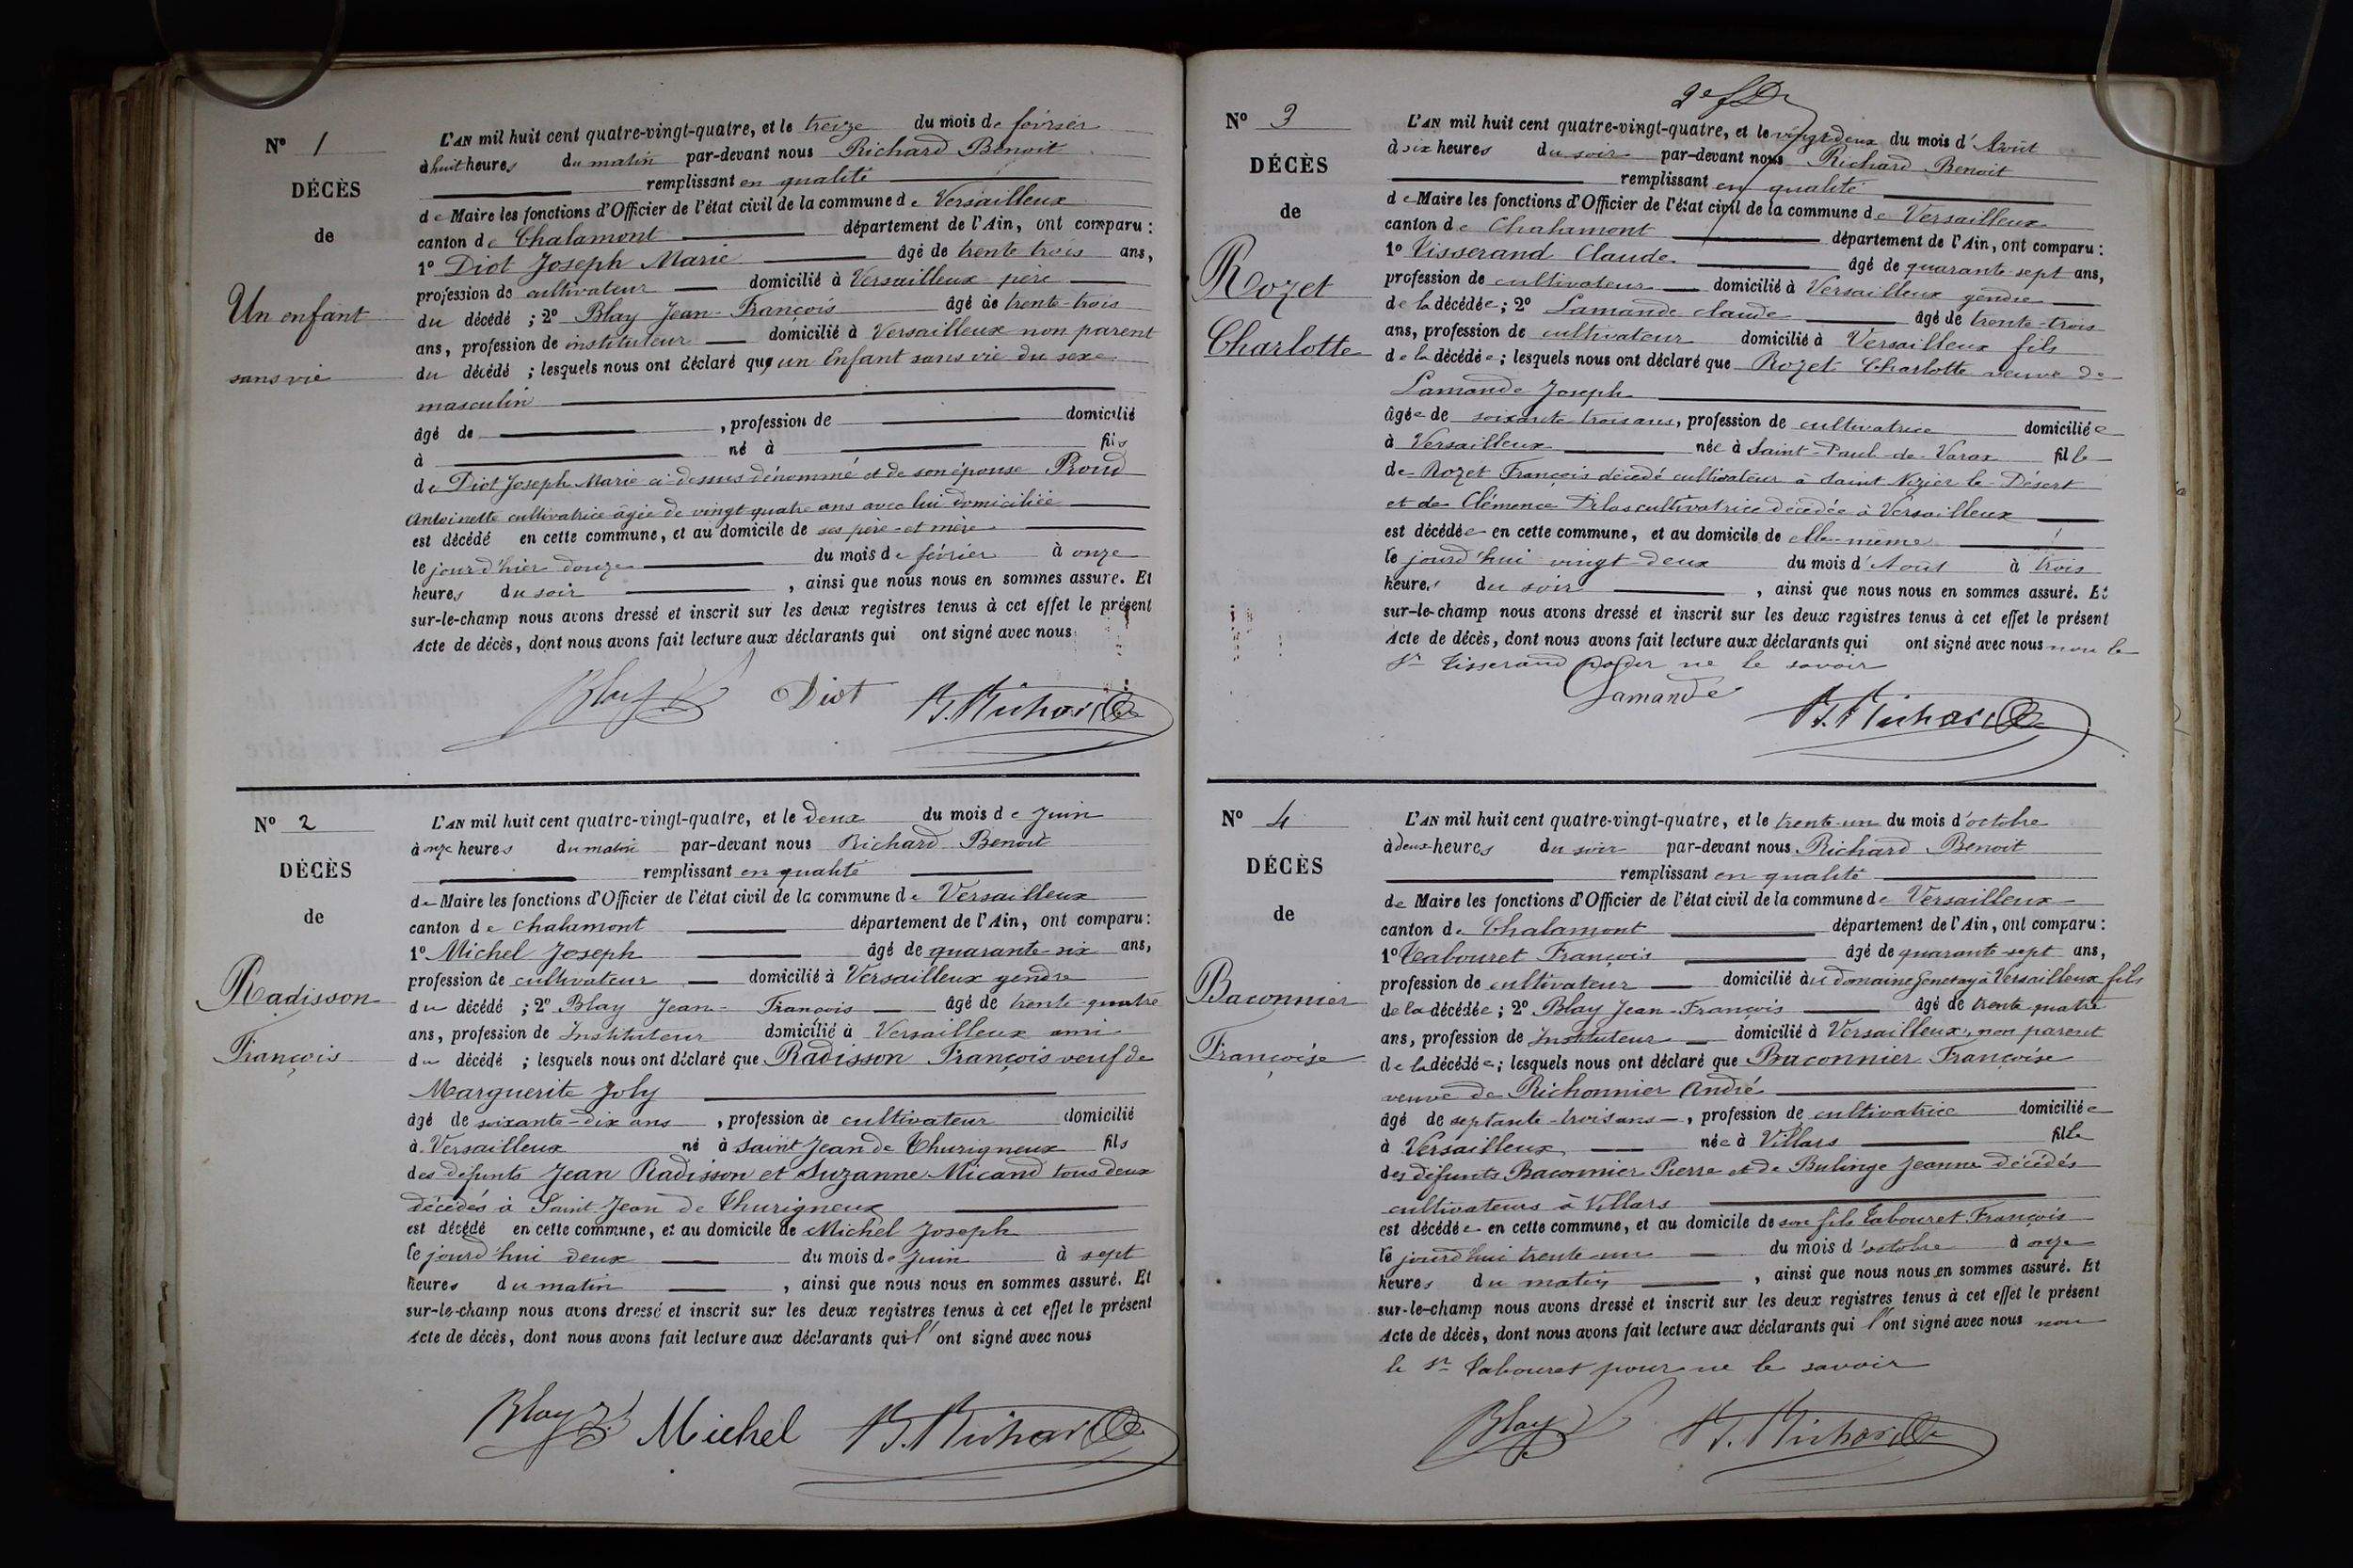 N° 1
DÉCÈS
de
Un enfant
sans vie
L'AN mil huit cent quatre-vingt-quatre, et le treize du mois de février
à huit heures du matin par-devant nous Richard Benoit
remplissant en qualité
de Maire les fonctions d'Officier de l'état civil de la commune de Versailleux
canton de Chalamont département de l'Ain, ont comparu :
1° Diot Joseph Marie âgé de trente trois ans,
profession de cultivateur domicilié à Versailleux père
du décédé ; 2° Blay Jean-François âgé de trente-trois
ans, profession de instituteur domicilié à Versailleux non parent
du décédé ; lesquels nous ont déclaré que un Enfant sans vie du sexe
masculin
âgé de , profession de domicilié
à né à fils
de Diot Joseph Marie ci-dessus dénommé et de son épouse Proud
Antoinette cultivatrice âgée de vingt quatre ans avec lui domiciliée
est décédé en cette commune, et au domicile de ses père et mère
le jour d'hier douze du mois de février à onze
heures du soir , ainsi que nous nous en sommes assuré. Et
sur-le-champ nous avons dressé et inscrit sur les deux registres tenus à cet effet le présent
Acte de décès, dont nous avons fait lecture aux déclarants qui ont signé avec nous
Blay Diot B. Richard
N° 2
DÉCÈS
de
Radisson
François
L'AN mil huit cent quatre-vingt-quatre, et le deux du mois de Juin
à onze heures du matin par-devant nous Richard Benoit
remplissant en qualité
de Maire les fonctions d'Officier de l'état civil de la commune de Versailleux
canton de Chalamont département de l'Ain, ont comparu :
1° Michel Joseph âgé de quarante-six ans,
profession de cultivateur domicilié à Versailleux gendre
du décédé ; 2° Blay Jean-François âgé de trente-quatre
ans, profession de Instituteur domicilié à Versailleux ami
du décédé ; lesquels nous ont déclaré que Radisson François veuf de
Marguerite Joly
âgé de soixante-dix ans , profession de cultivateur domicilié
à Versailleux né à Saint Jean de Thurigneux fils
des défunts Jean Radisson et Suzanne Micand tous deux
décédés à Saint Jean de Thurigneux
est décédé en cette commune, et au domicile de Michel Joseph
le jourd'hui deux du mois de Juin à sept
heures du matin , ainsi que nous nous en sommes assuré. Et
sur-le-champ nous avons dressé et inscrit sur les deux registres tenus à cet effet le présent
Acte de décès, dont nous avons fait lecture aux déclarants qui l'ont signé avec nous
Blay Michel B. Richard
N° 3
DÉCÈS
de
Rozet
Charlotte
L'AN mil huit cent quatre-vingt-quatre, et le vingt deux du mois d'Août
à six heures du soir par-devant nous Richard Benoit
remplissant en qualité
de Maire les fonctions d'Officier de l'état civil de la commune de Versailleux
canton de Chalamont département de l'Ain, ont comparu :
1° Tisserand Claude âgé de quarante-sept ans,
profession de cultivateur domicilié à Versailleux gendre
de la décédée ; 2° Lamande claude âgé de trente-trois
ans, profession de cultivateur domicilié à Versailleux fils
de la décédée ; lesquels nous ont déclaré que Rozet Charlotte veuve de
Lamande Joseph
âgée de soixante trois ans, profession de cultivatrice domiciliée
à Versailleux née à Saint-Paul-de-Varax fille
de Rozet François décédé cultivateur à Saint Nizier le Désert
et de Clémence Dilas cultivatrice décédée à Versailleux
est décédée en cette commune, et au domicile de elle-même
le jourd'hui vingt-deux du mois d'Aout à trois
heures du soir , ainsi que nous nous en sommes assuré. Et
sur-le-champ nous avons dressé et inscrit sur les deux registres tenus à cet effet le présent
Acte de décès, dont nous avons fait lecture aux déclarants qui ont signé avec nous non le
Sr Tisserand pour ne le savoir
Lamande
B. Richard
N° 4
DÉCÈS
de
Baconnier
Françoise
L'AN mil huit cent quatre-vingt-quatre, et le trente-un du mois d'octobre
à deux heures du soir par-devant nous Richard Benoit
remplissant en qualité
de Maire les fonctions d'Officier de l'état civil de la commune de Versailleux
canton de Chalamont département de l'Ain, ont comparu :
1° Tabouret François âgé de quarante-sept ans,
profession de cultivateur domicilié au domaine Genetay à Versailleux fils
de la décédée ; 2° Blay Jean-François âgé de trente-quatre
ans, profession de Instituteur domicilié à Versailleux, non parent
de la décédée ; lesquels nous ont déclaré que Baconnier Françoise
veuve de Richonnier André
âgé de septante-trois ans , profession de cultivatrice domiciliée
à Versailleux née à Villars fille
des défunts Baconnier Pierre et de Bulinge Jeanne décédés
cultivateurs à Villars
est décédée en cette commune, et au domicile de son fils Tabouret François
le jourd'hui trente-un du mois d'octobre à onze
heures du matin , ainsi que nous nous en sommes assuré. Et
sur-le-champ nous avons dressé et inscrit sur les deux registres tenus à cet effet le présent
Acte de décès, dont nous avons fait lecture aux déclarants qui l'ont signé avec nous non
le Sr Tabouret pour ne le savoir
Blay B. Richard